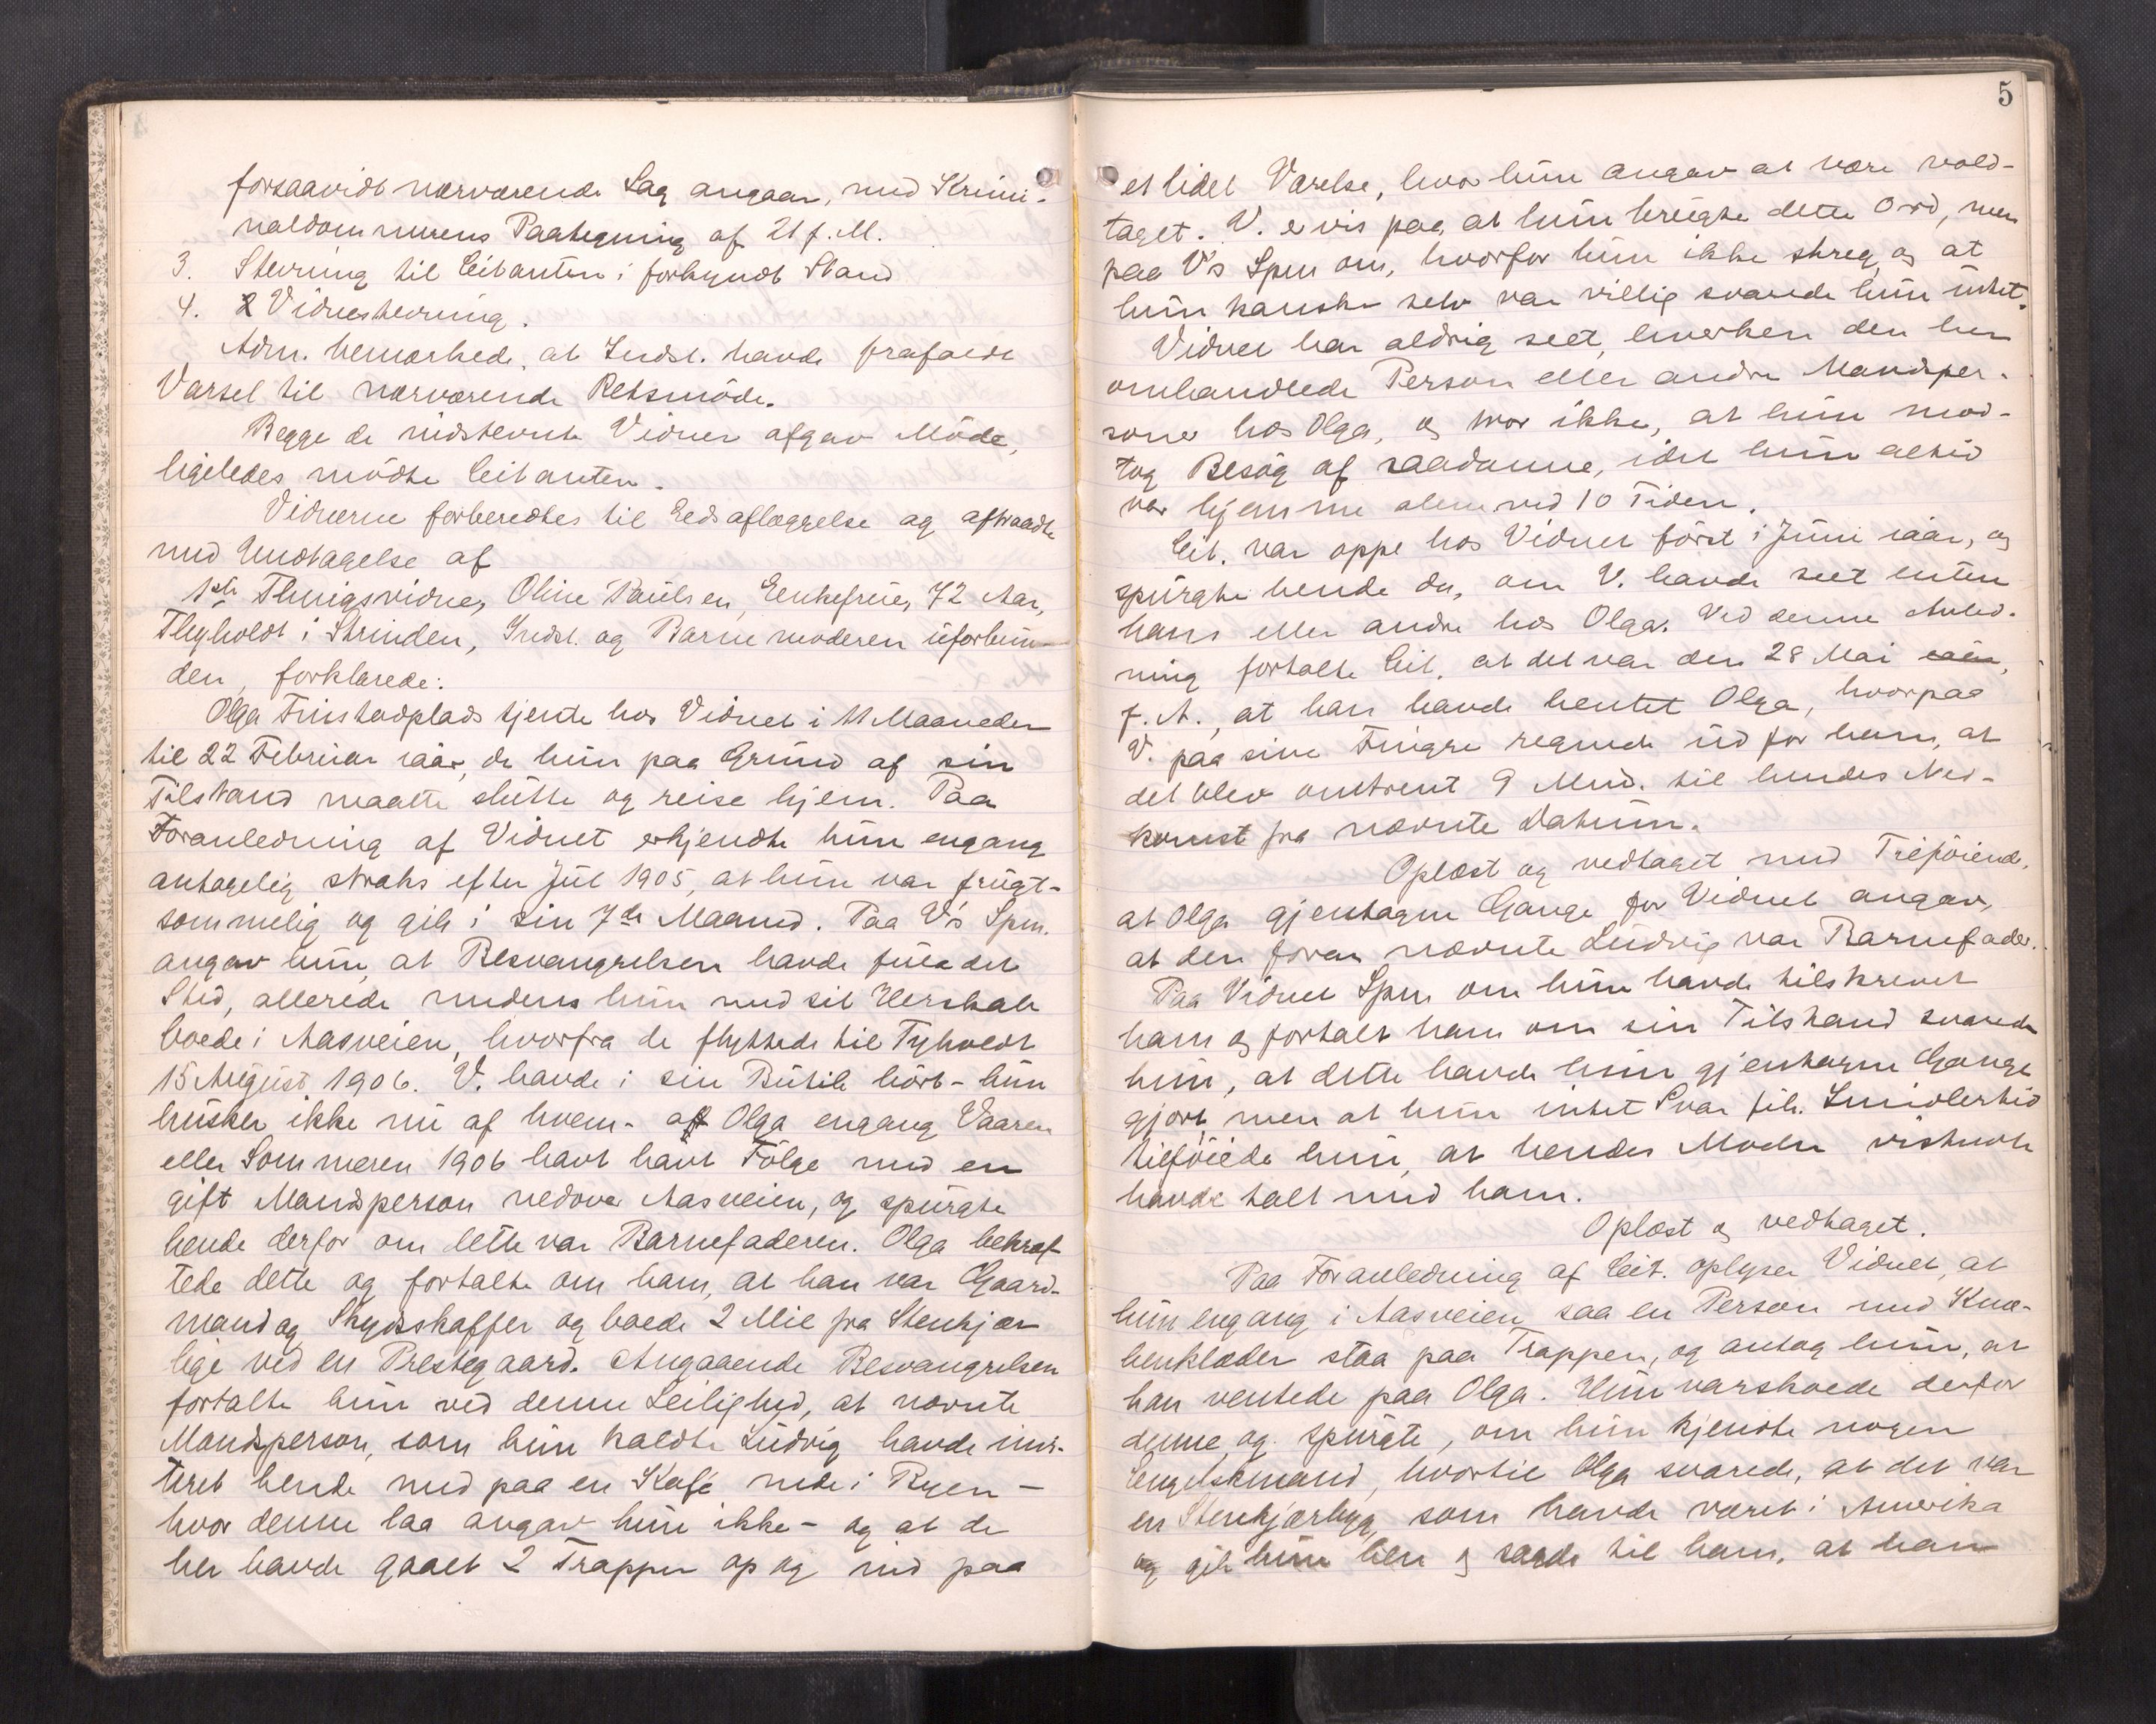 forsaavidt nærværende Sag angaar, med Krimi-
naldommerens Paategning af 21 f. M.
3. Stevning til Citanten i forkyndt Stand
4. 2 Vidnestevning.
Adm. bemærkede, at Indst. havde frafaldt
Varsel til nærværende Retsmöde.
Begge de indstevnte Vidner afgav Möde,
ligeledes mödte Citanten.
Vidnerne forberedtes til Eedsaflæggelse og aftraadte
med Undtagelse af
1ste Thingsvidne, Oline Paulsen, Enkefrue, 72 Aar,
Thyholdt i Strinden, Indst. og Barnemoderen uforbun-
den, forklarede:
Olga Finstadplads tjente hos Vidnet i 11 Maaneder
til 22 Februar iaar, da hun paa Grund af sin
Tilstand maatte slutte og reise hjem. Paa
Foranledning af Vidnet erkjendte hun engang
antagelig straks efter Jul 1905, at hun var frugt-
sommelig og gik i sin 7de Maaned. Paa V's Spm.
angav hun, at Besvangrelsen havde fundet
Sted, allerede medens hun med sit Herskab
boede i Aasveien, hvorfra de flyttede til Tyholdt
15 August 1906. V. havde i sin Butik hört - hun
husker ikke nu af hvem - at Olga engang Vaaren
eller Sommeren 1906 havt havt Fölge med en
gift Mandsperson nedover Aasveien, og spurgte
hende derfor om dette var Barnefaderen. Olga bekræf-
tede dette og fortalte om ham, at han var Gaard-
mand og Skydsskaffer og boede 2 Mil fra Stenkjær
lige ved en Prestegaard. Angaaende Besvangrelsen
fortalte hun ved denne Leilighed, at nævnte
Mandsperson, som hun kaldte Ludvig havde invi-
teret hende med paa en Kafé nede i Byen -
hvor denne laa angav hun ikke - og at de
her havde gaaet 2 Trapper op og ind paa
5
et lidet Værelse, hvor hun angav at være vold-
taget. V. er vis paa, at hun brugte dette Ord, men
paa V's Spm om, hvorfor hun ikke skreg, og at
hun kanske selv var villig svarede hun intet.
Vidnet har aldrig seet, hverken den her
omhandlede Person eller andre Mandsper-
soner hos Olga, og tror ikke, at hun mod-
tog Besög af saadanne, idet hun altid
var hjemme alene ved 10 Tiden.
Cit. var oppe hos Vidnet först i Juni iaar, og
spurgte hende da, om V. havde seet enten
hans eller andre hos Olga. Ved denne Anled-
ning fortalte Cit. at det var den 28 Mai iaar,
f. A., at han havde hentet Olga, hvorpaa
V. paa sine Fingre regnede ud for ham, at
det blev omtrent 9 Mnd. til hendes Ned-
komst fra nævnte Datum.
Oplæst og vedtaget med Tilföiende,
at Olga gjentagne Gange for Vidnet angav,
at den foran nævnte Ludvig var Barnefader.
Paa Vidnet Spm om hun havde tilskrevet
ham og fortalt ham om sin Tilstand svarede
hun, at dette havde hun gjentagne Gange
gjort, men at hun intet Svar fik. Imidlertid
tilföiede hun, at hendes Moder vistnok
havde talt med ham.
Oplæst og vedtaget.
Paa Foranledning af Cit. oplyser Vidnet, at
hun engang i Aasveien saa en Person med Knæ-
benklæder staa paa Trappen, og antog hun, at
han ventede paa Olga. Hun varskoede derfor
denne og spurgte, om hun kjendte nogen
Engelskmand, hvortil Olga svarede, at det var
en Stenkjærbyg, som havde været i Amerika
og gik hun hen og sagde til ham, at han